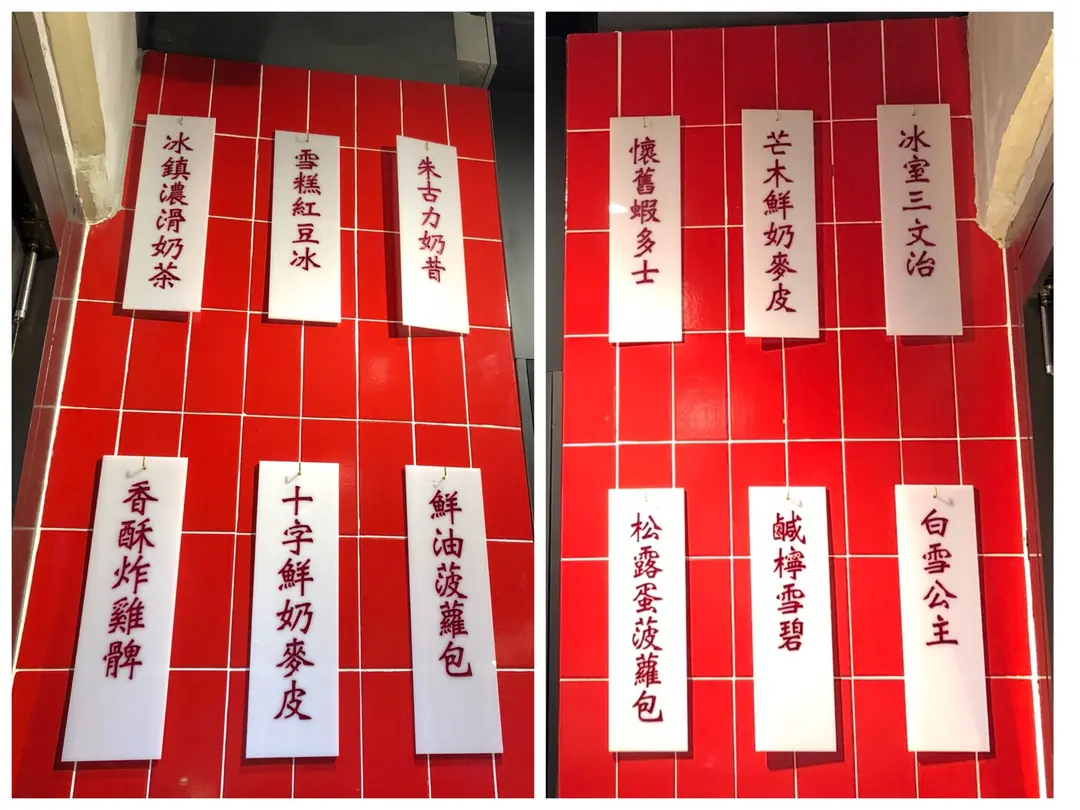 冰鎮濃滑奶茶
雪糕紅豆冰
朱古力奶昔
香酥炸雞髀
十字鮮奶麥皮
鮮油菠蘿包
懷舊蝦多士
芒木鮮奶麥皮
冰室三文治
松露蛋菠蘿包
鹹檸雪碧
白雪公主